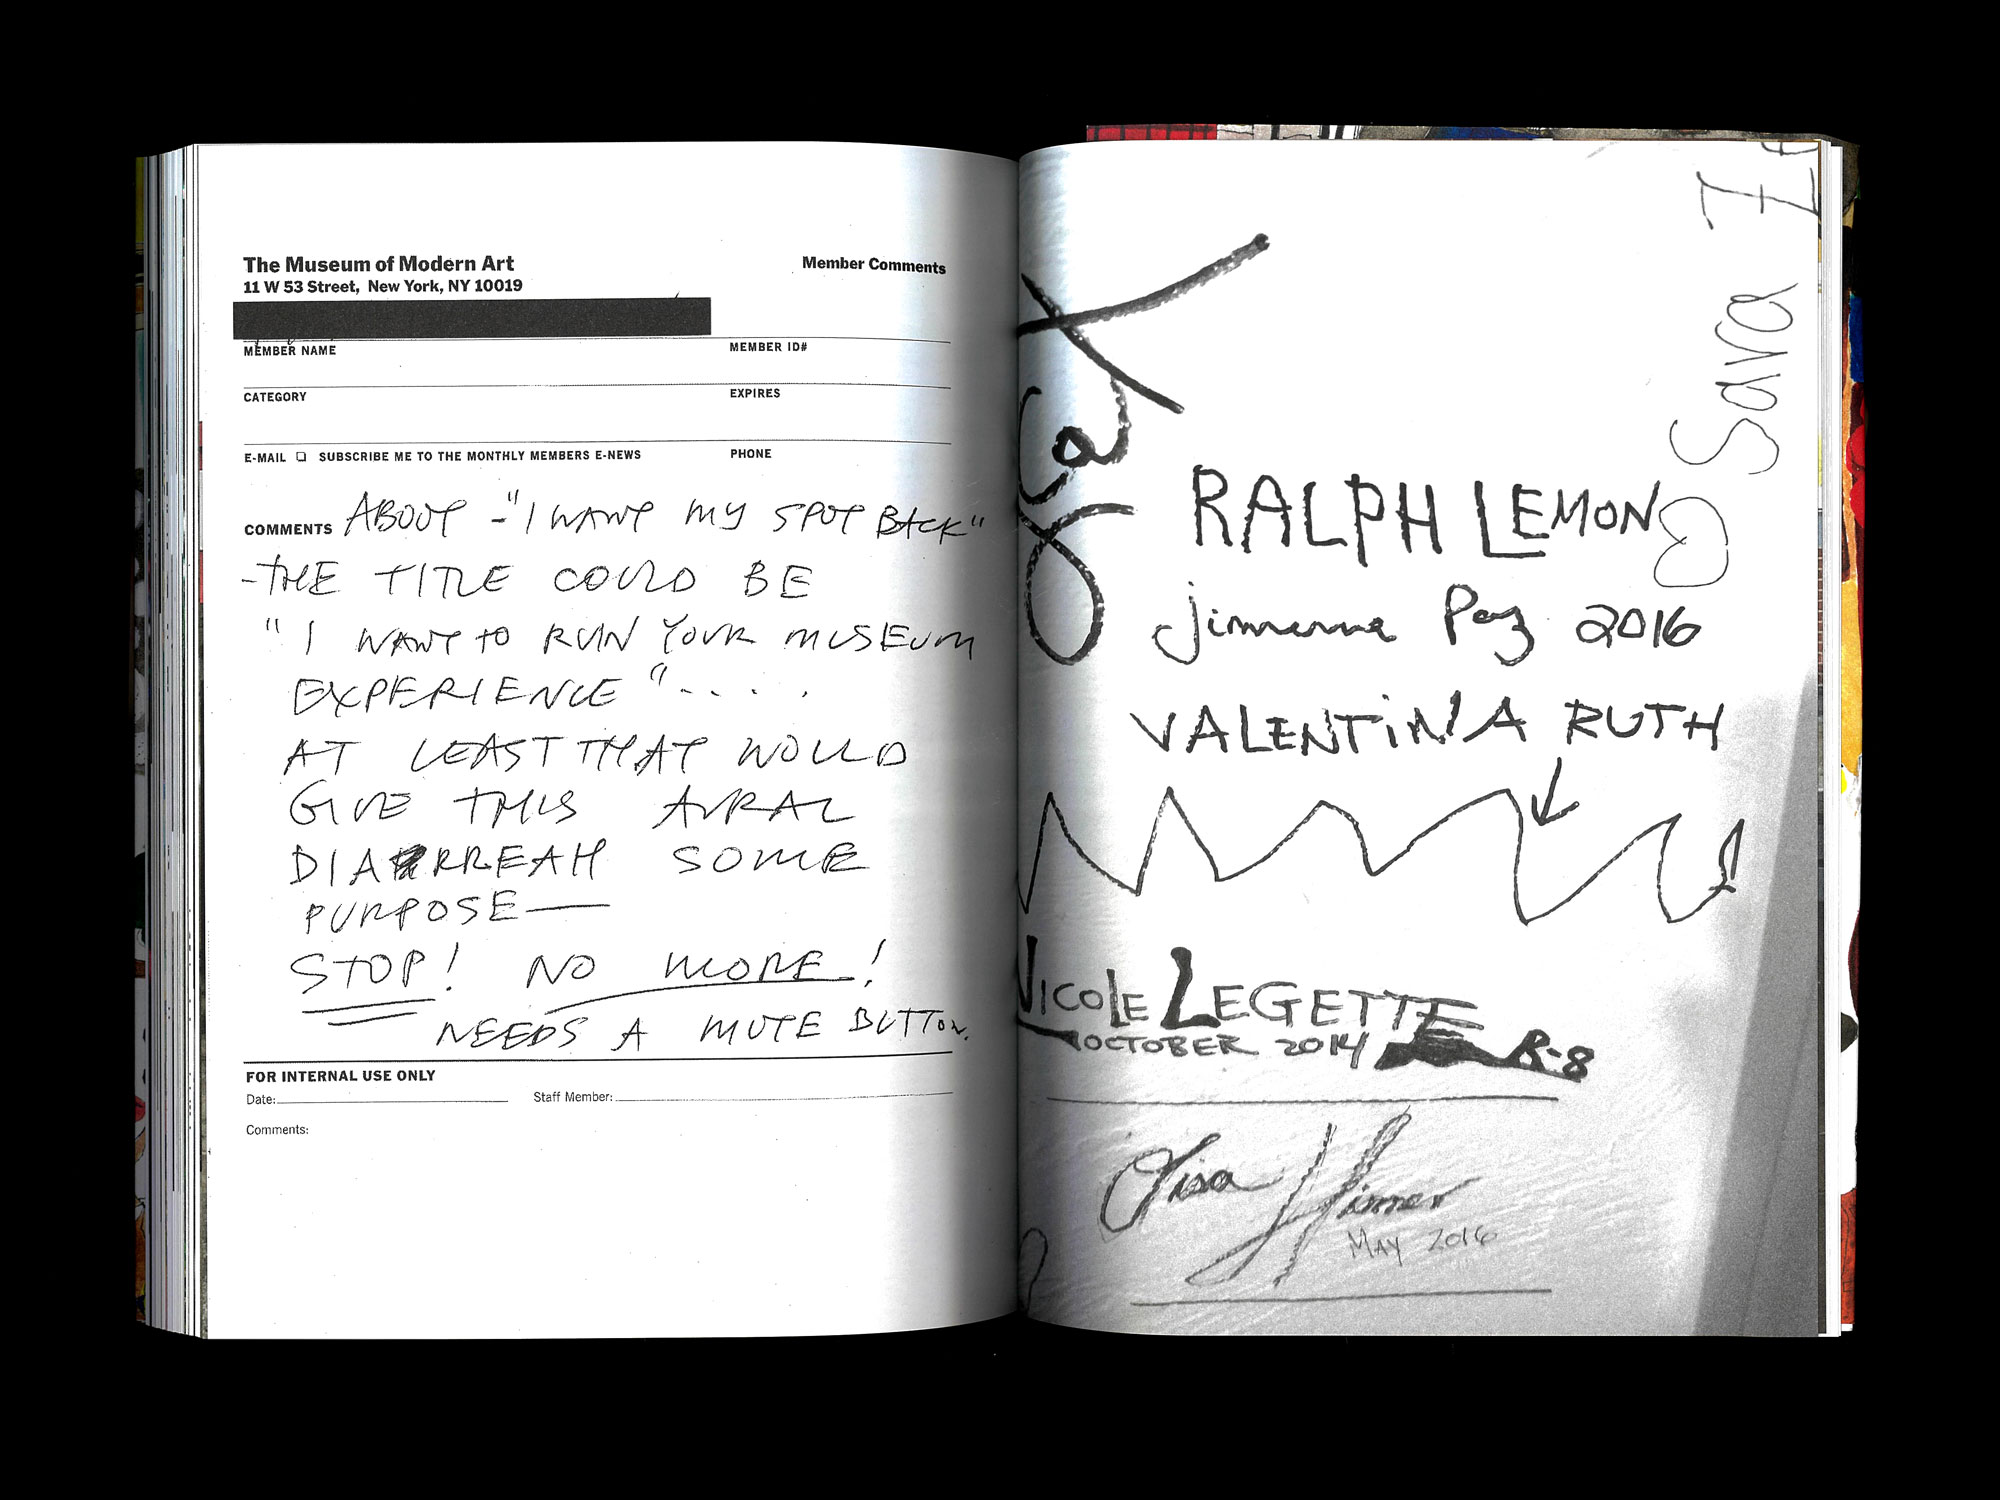 The Museum of Modern Art
Member Comments
11 W 53 Street, New York, NY 10019
MEMBER NAME
MEMBER ID#
CATEGORY
EXPIRES
E-MAIL ❏ SUBSCRIBE ME TO THE MONTHLY MEMBERS E-NEWS
PHONE
COMMENTS ABOUT - "I WANT MY SPOT BACK"
- THE TITLE COULD BE
"I WANT TO RUN YOUR MUSEUM
EXPERIENCE" - . . . .
AT LEAST THAT WOULD
GIVE THIS AURAL
DIARRREAH SOME
PURPOSE —
STOP! NO MORE!
NEEDS A MUTE BUTTON.
FOR INTERNAL USE ONLY
Date:
Staff Member:
Comments:
Sara
RALPH LEMON
Paz 2016
VALENTINA RUTH
NICOLE LEGETTE
OCTOBER 2014 R-8
MAY 2016